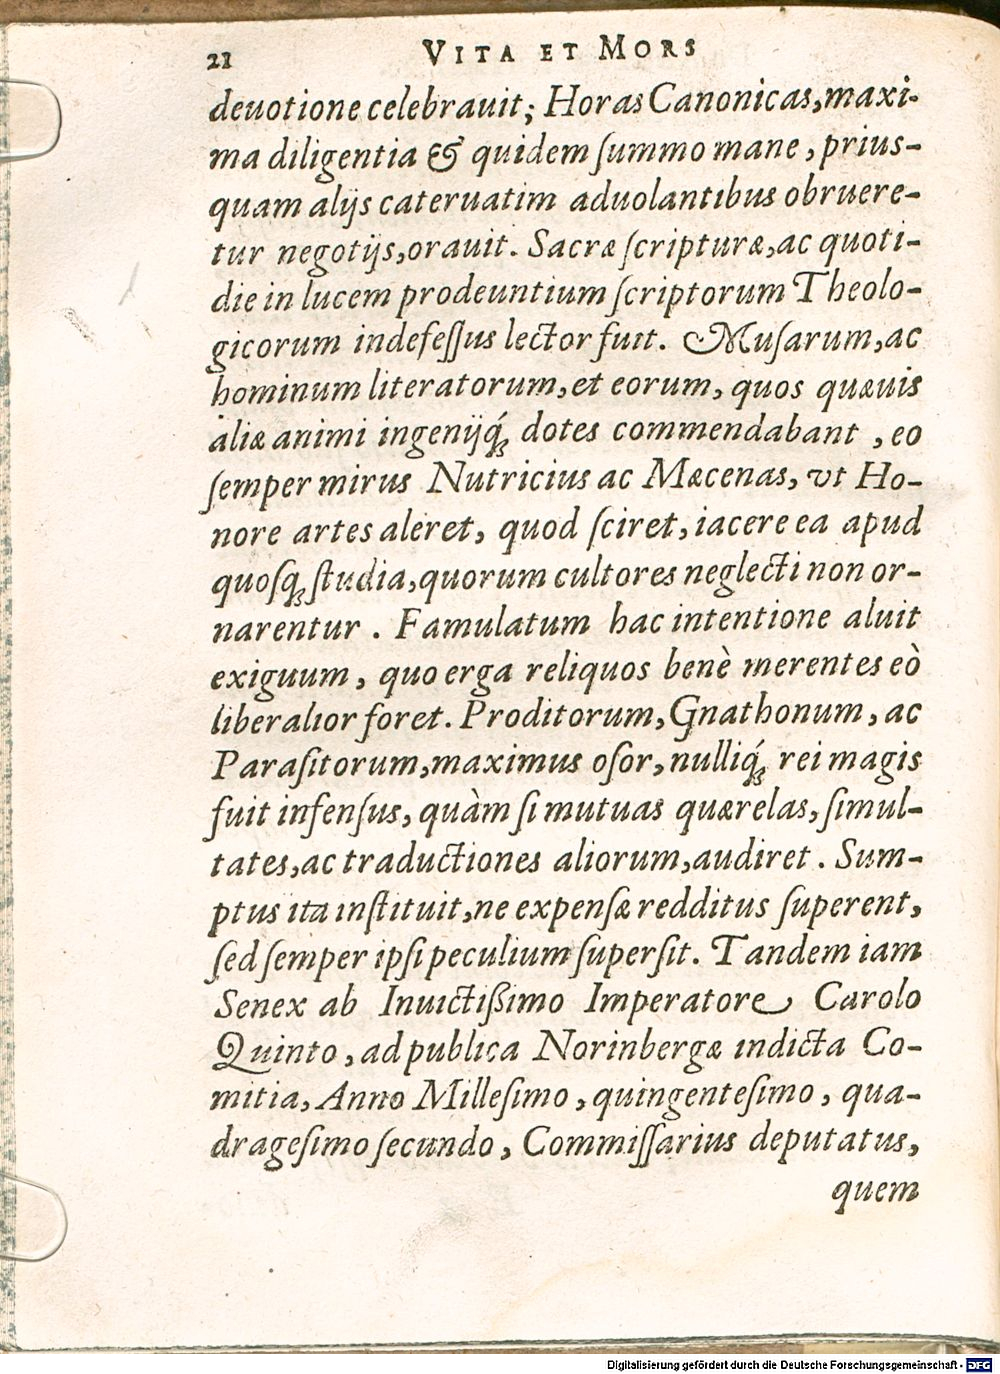 21 VITA ET MORS
deuotione celebrauit; Horas Canonicas, maxi-
ma diligentia & quidem ſummo mane, prius-
quam alijs cateruatim aduolantibus obruere-
tur negotijs, orauit. Sacræ ſcripturæ, ac quoti-
die in lucem prodeuntium ſcriptorum Theolo-
gicorum indefeſſus lector fuit. Muſarum, ac
hominum literatorum, et eorum, quos quæuis
aliæ animi ingenijq́ꝫ dotes commendabant, eo
ſemper mirus Nutricius ac Mæcenas, vt Ho-
nore artes aleret, quod ſciret, iacere ea apud
quoſqꝫ ſtudia, quorum cultores neglecti non or-
narentur. Famulatum hac intentione aluit
exiguum, quo erga reliquos benè merentes eò
liberalior foret. Proditorum, Gnathonum, ac
Paraſitorum, maximus oſor, nulliq́ꝫ rei magis
fuit infenſus, quàm ſi mutuas quærelas, ſimul-
tates, ac traductiones aliorum, audiret. Sum-
ptus ita inſtituit, ne expenſæ redditus ſuperent,
ſed ſemper ipſi peculium ſuperſit. Tandem iam
Senex ab Inuictißimo Imperatore Carolo
Quinto, ad publica Norinbergæ indicta Co-
mitia, Anno Milleſimo, quingenteſimo, qua-
drageſimo ſecundo, Commiſſarius deputatus,
quem
Digitalisierung gefördert durch die Deutsche Forschungsgemeinschaft - DFG